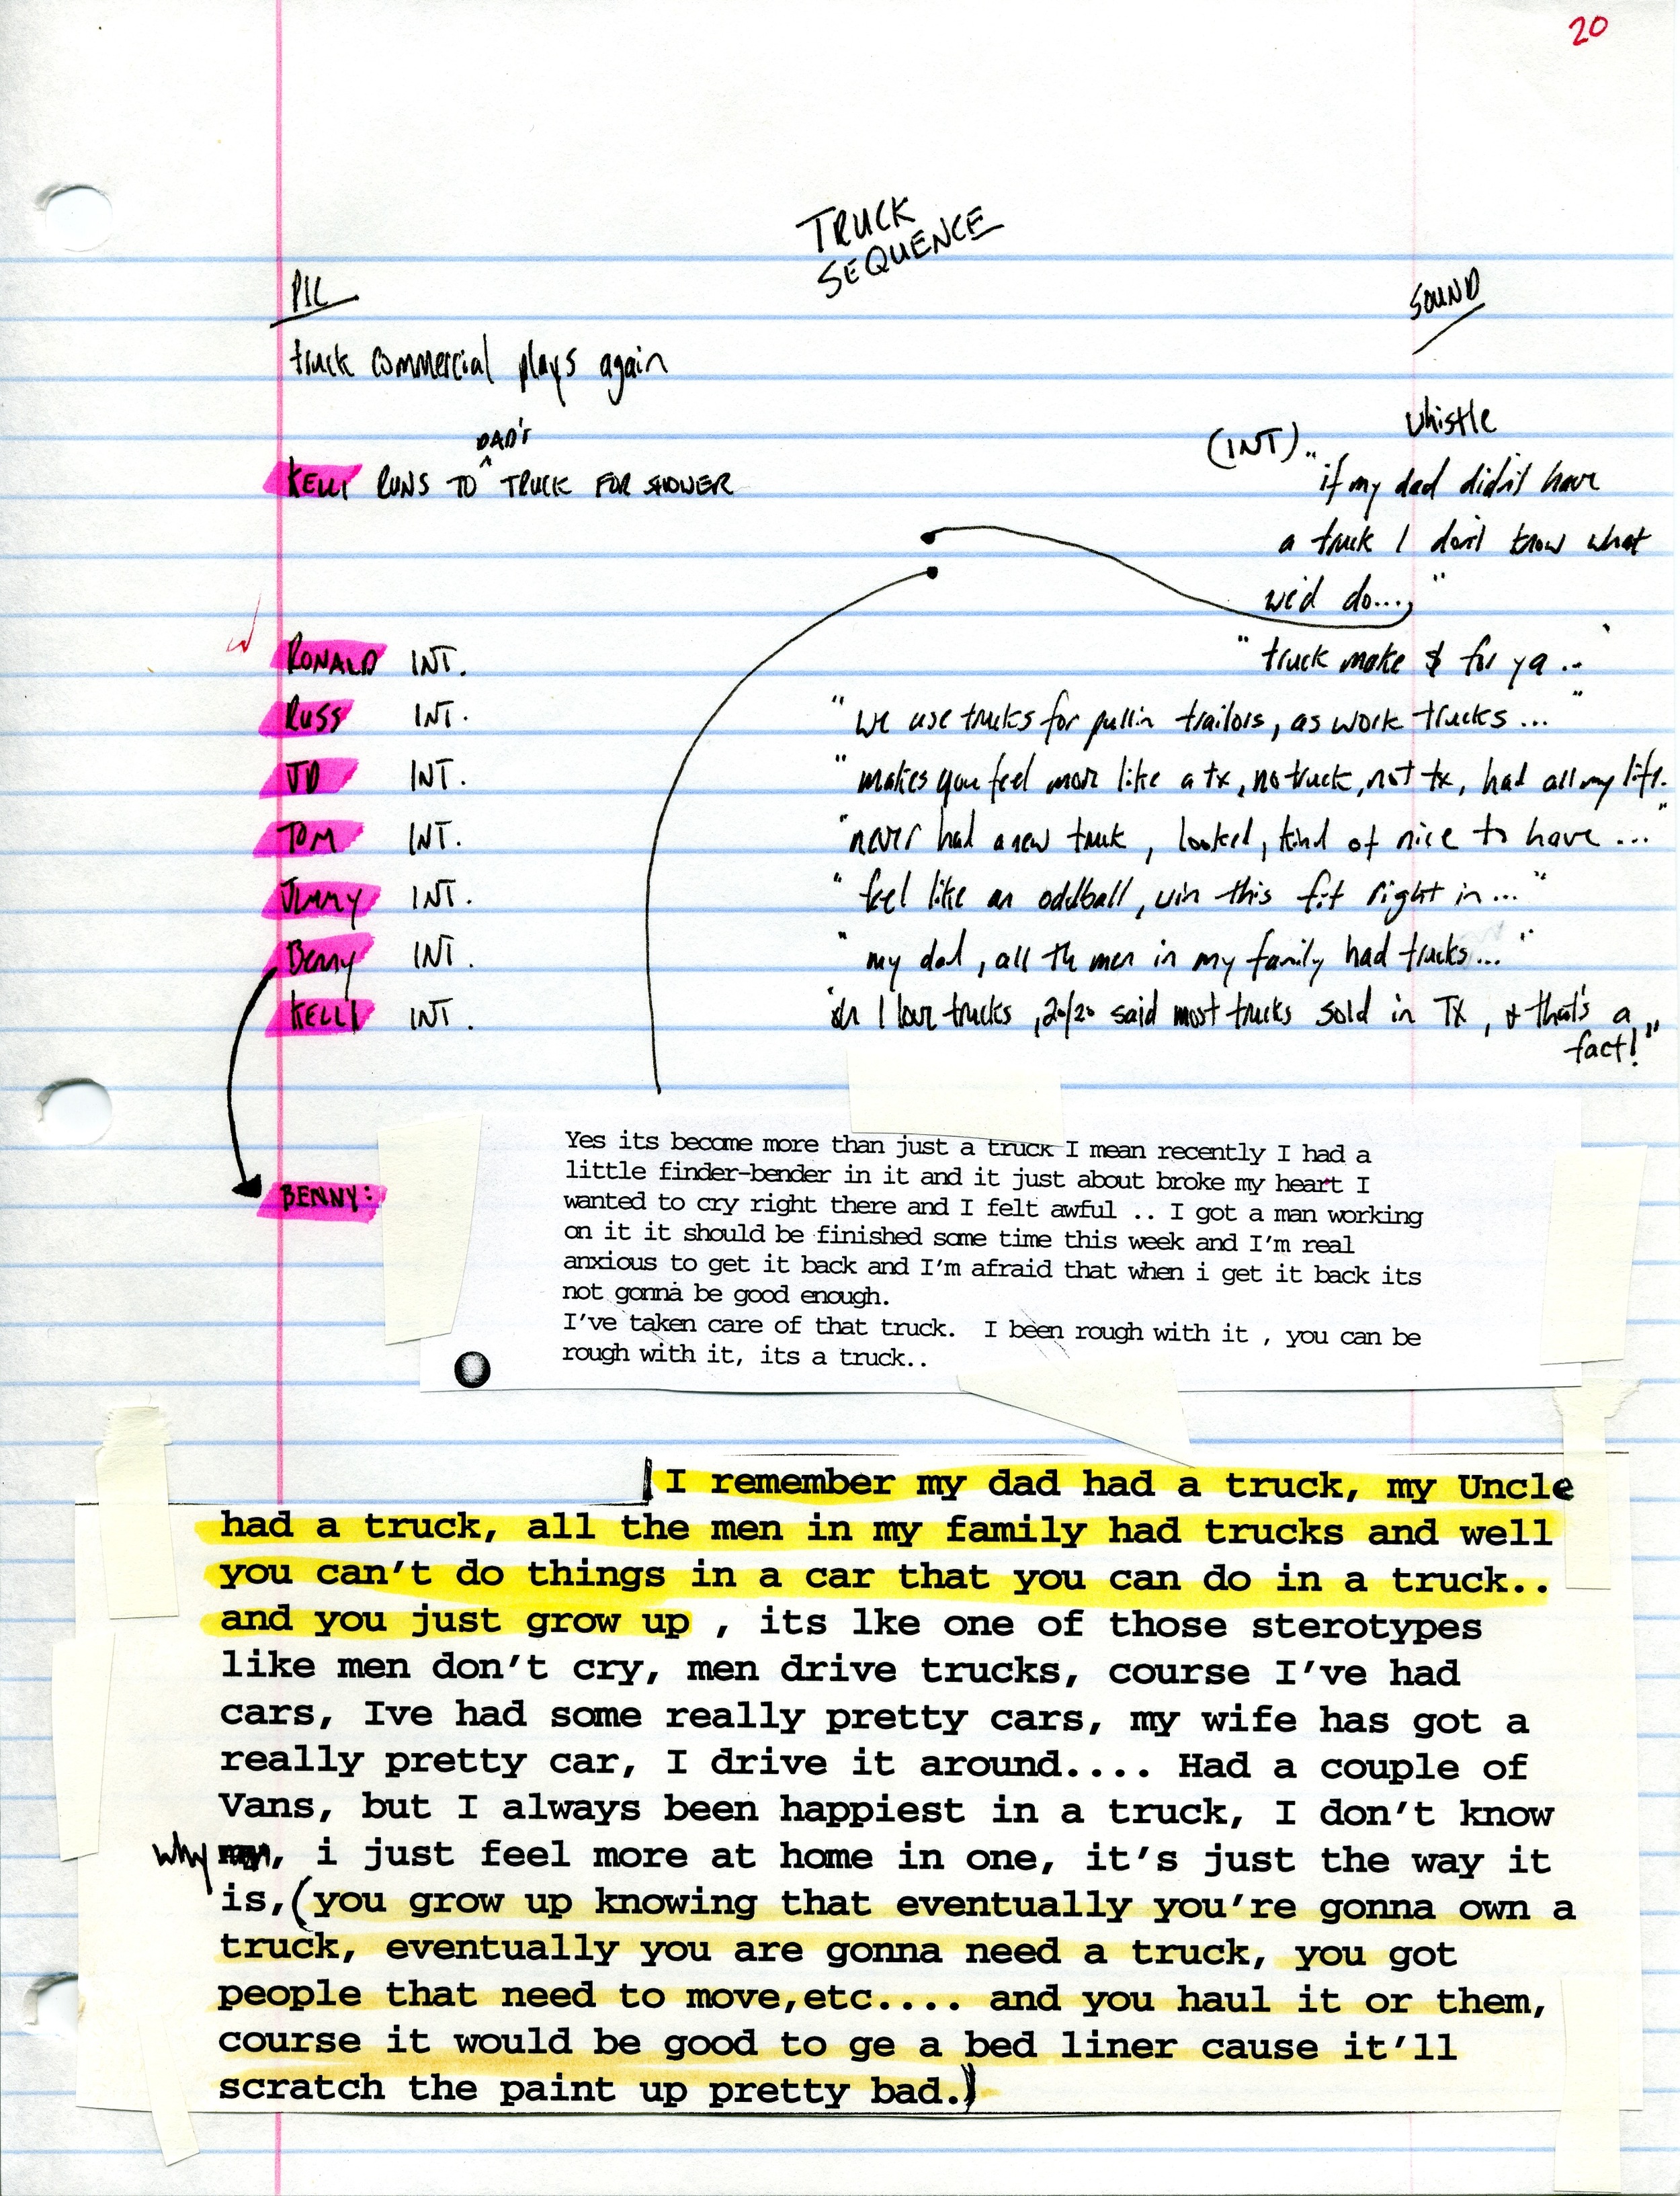 20
TRUCK
SEQUENCE
PIC
SOUND
truck commercial plays again
whistle
DAD'S
(INT)..
KELLI RUNS TO ^ TRUCK FOR SHOWER
if my dad didn't have
a truck I don't know what
we'd do...,"
RONALD INT. "truck make $ for ya ..
RUSS INT. "we use trucks for pullin trailors, as work trucks ..."
JD INT. "makes you feel more like a tx, no truck, not tx, had all my life."
TOM INT. "never had a new truck, looked, kind of nice to have ..."
JIMMY INT. "feel like an oddball, win this fit right in ..."
Benny INT. "my dad, all the men in my family had trucks..."
KELLI INT. I love trucks, 20/20 said most trucks sold in Tx, + that's a
fact!"
BENNY:
Yes its become more than just a truck I mean recently I had a
little finder-bender in it and it just about broke my heart I
wanted to cry right there and I felt awful .. I got a man working
on it it should be finished some time this week and I'm real
anxious to get it back and I'm afraid that when i get it back its
not gonna be good enough.
I've taken care of that truck. I been rough with it , you can be
rough with it, its a truck..
I remember my dad had a truck, my Uncle
had a truck, all the men in my family had trucks and well
you can't do things in a car that you can do in a truck..
and you just grow up , its lke one of those sterotypes
like men don't cry, men drive trucks, course I've had
cars, Ive had some really pretty cars, my wife has got a
really pretty car, I drive it around.... Had a couple of
Vans, but I always been happiest in a truck, I don't know
why, i just feel more at home in one, it's just the way it
is,(you grow up knowing that eventually you're gonna own a
truck, eventually you are gonna need a truck, you got
people that need to move,etc.... and you haul it or them,
course it would be good to ge a bed liner cause it'll
scratch the paint up pretty bad.)